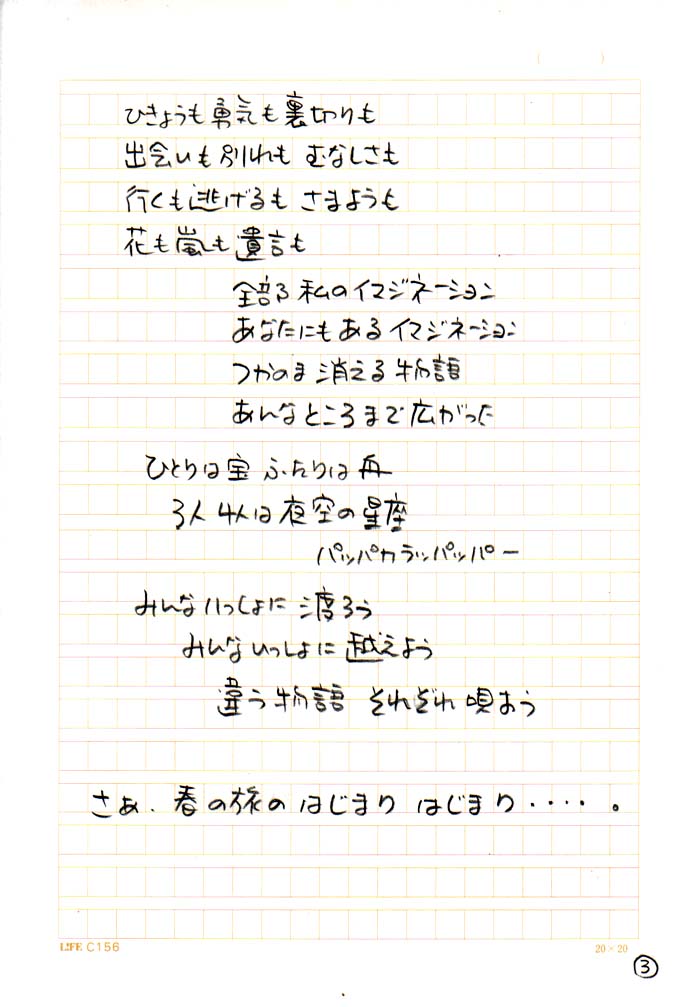 ひきょうも勇気も裏切りも
出会いも別れも むなしさも
行くも逃げるも さまようも
花も嵐も遺言も
全部 私のイマジネーション
あなたにもあるイマジネーション
つかのま 消える 物語
あんなところまで広がった
ひとりは宝 ふたりは舟
3人 4人は 夜空の星座
パッパカラッパッパー
みんないっしょに 渡ろう
みんないっしょに 越えよう
違う物語 それぞれ 唄おう
さぁ、春の旅の はじまり はじまり・・・・。
LIFE C156
20×20
③